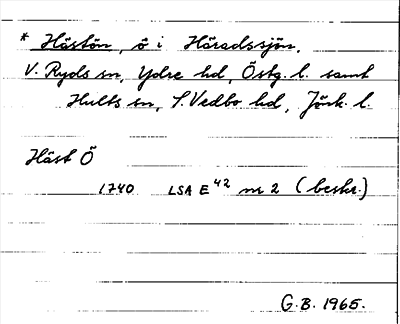 * Hästön, ö i Häradssjön,
V. Ryds sn, Ydre hd, Östg. l. samt
Hults sn, S. Vedbo hd, Jönk. l.
Häst Ö
1740 LSA E 42 nr 2 (beskr.)
G.B. 1965.